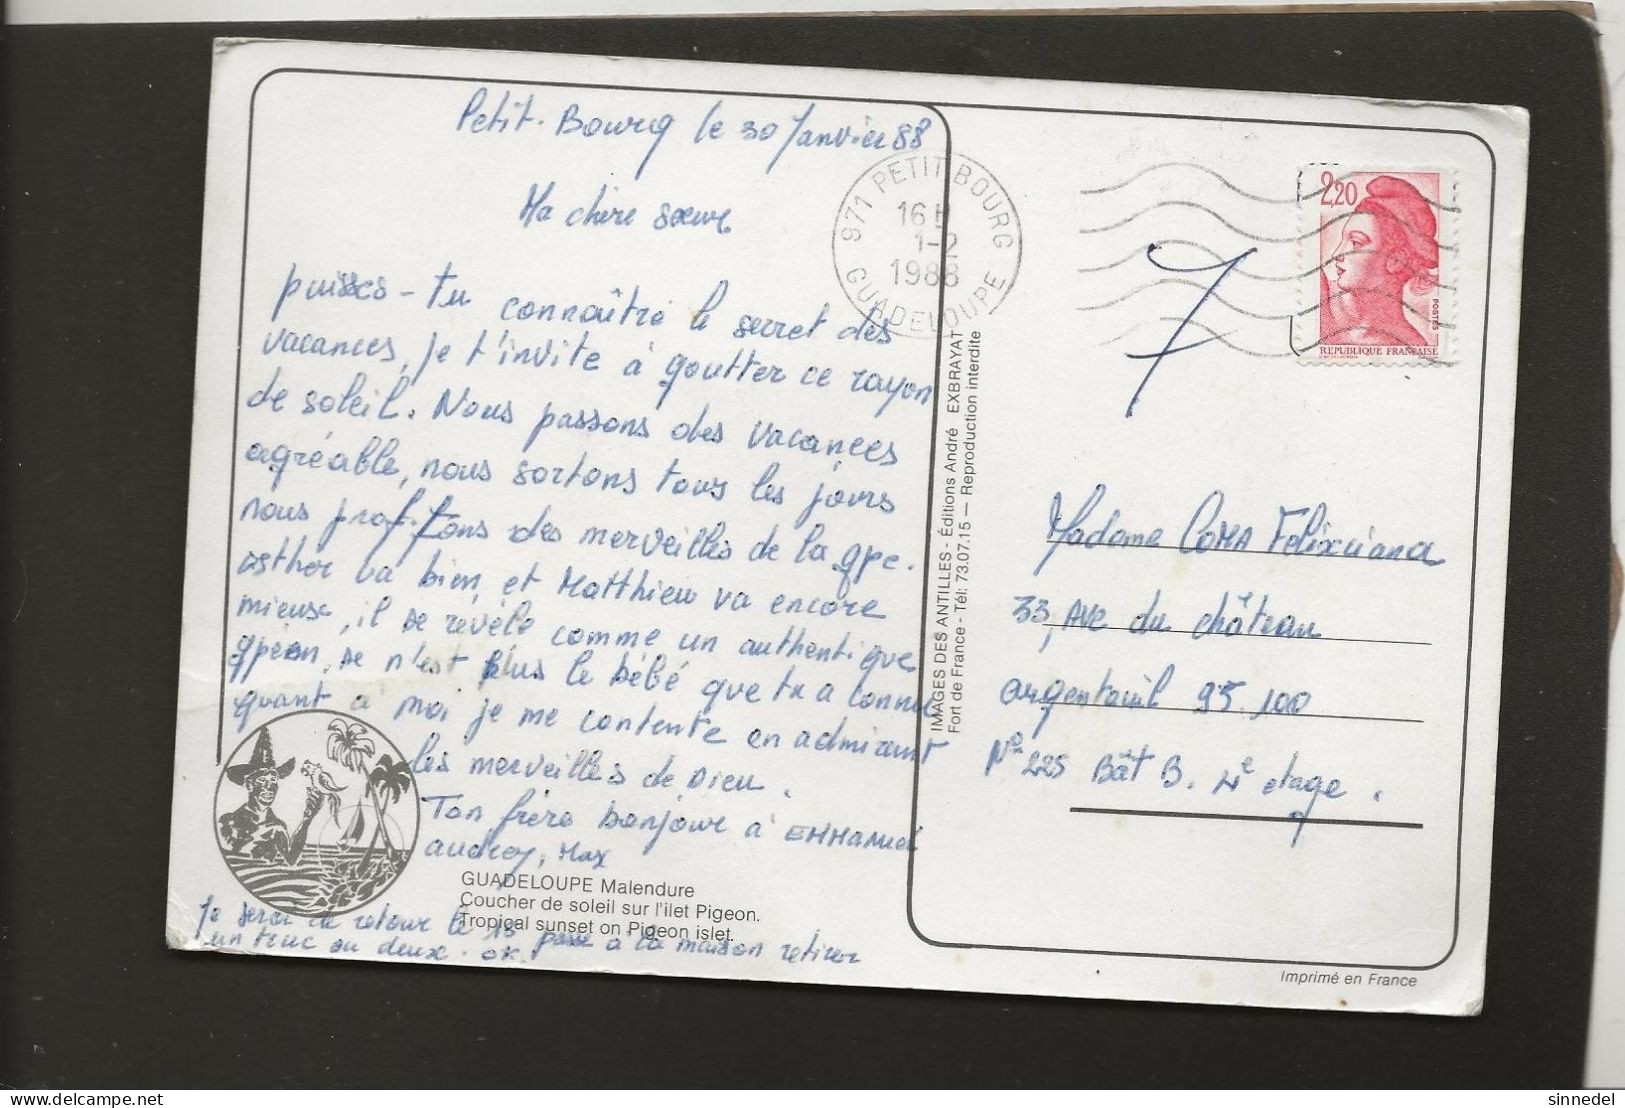 Petit-Bourg le 30 Janvier 88
Ma chère sœur
puisses-tu connaître le secret des
vacances, je t'invite à goutter ce rayon
de soleil. Nous passons des vacances
agréable, nous sortons tous les jours
nous profitons des merveilles de la gpe.
asther va bien, et Matthieu va encore
mieux, il se révèle comme un authentique
gpéen, se n'est plus le bébé que tu a connu
quant à moi je me contente en admirant
les merveilles de Dieu.
Ton frère bonjour à EMMANUEL
audrey, Max
GUADELOUPE Malendure
Coucher de soleil sur l'ilet Pigeon.
Tropical sunset on Pigeon islet.
Je serai de retour le 15 passe à la maison retirer
un truc ou deux. ok.
971 PETIT BOURG
16 H
1-2
1988
GUADELOUPE
IMAGES DES ANTILLES - Éditions André EXBRAYAT
Fort de France - Tél: 73.07.15 — Reproduction interdite
2,20
POSTES
REPUBLIQUE FRANÇAISE
Madame COMA Felixciana
33, AVE du château
argenteuil 95.100
N° 225 Bât B. 4e etage.
Imprimé en France
sinnedel